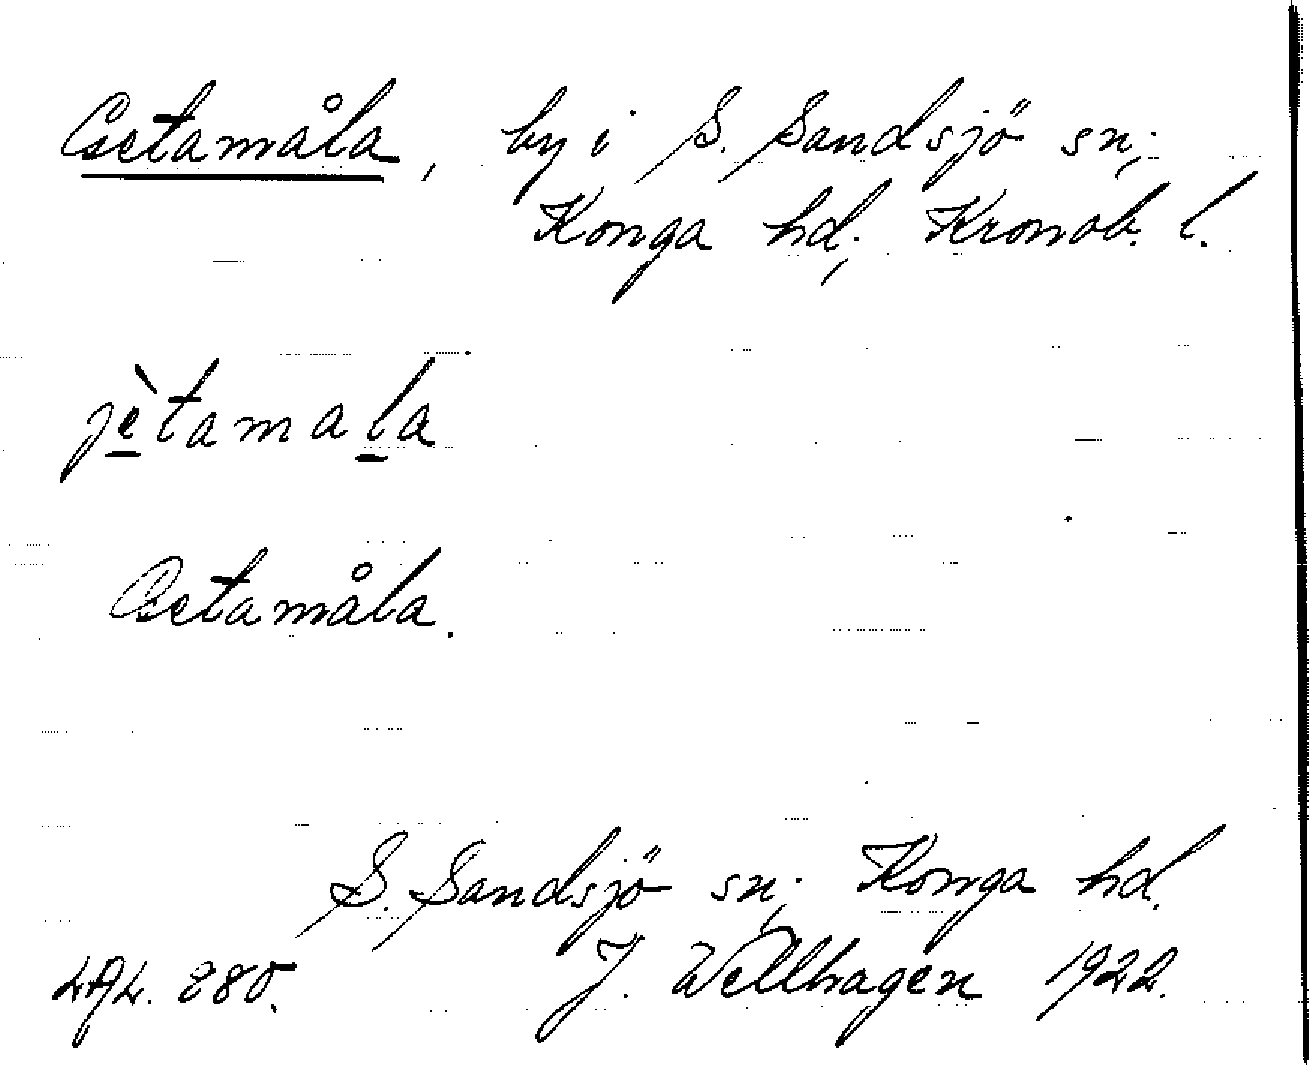 Getamåla, by i S. Sandsjö sn;
Konga hd; Kronob. l.
jètamala
Getamåla.
S. Sandsjö sn; Konga hd.
LAL. J. Wellhagen 1922.